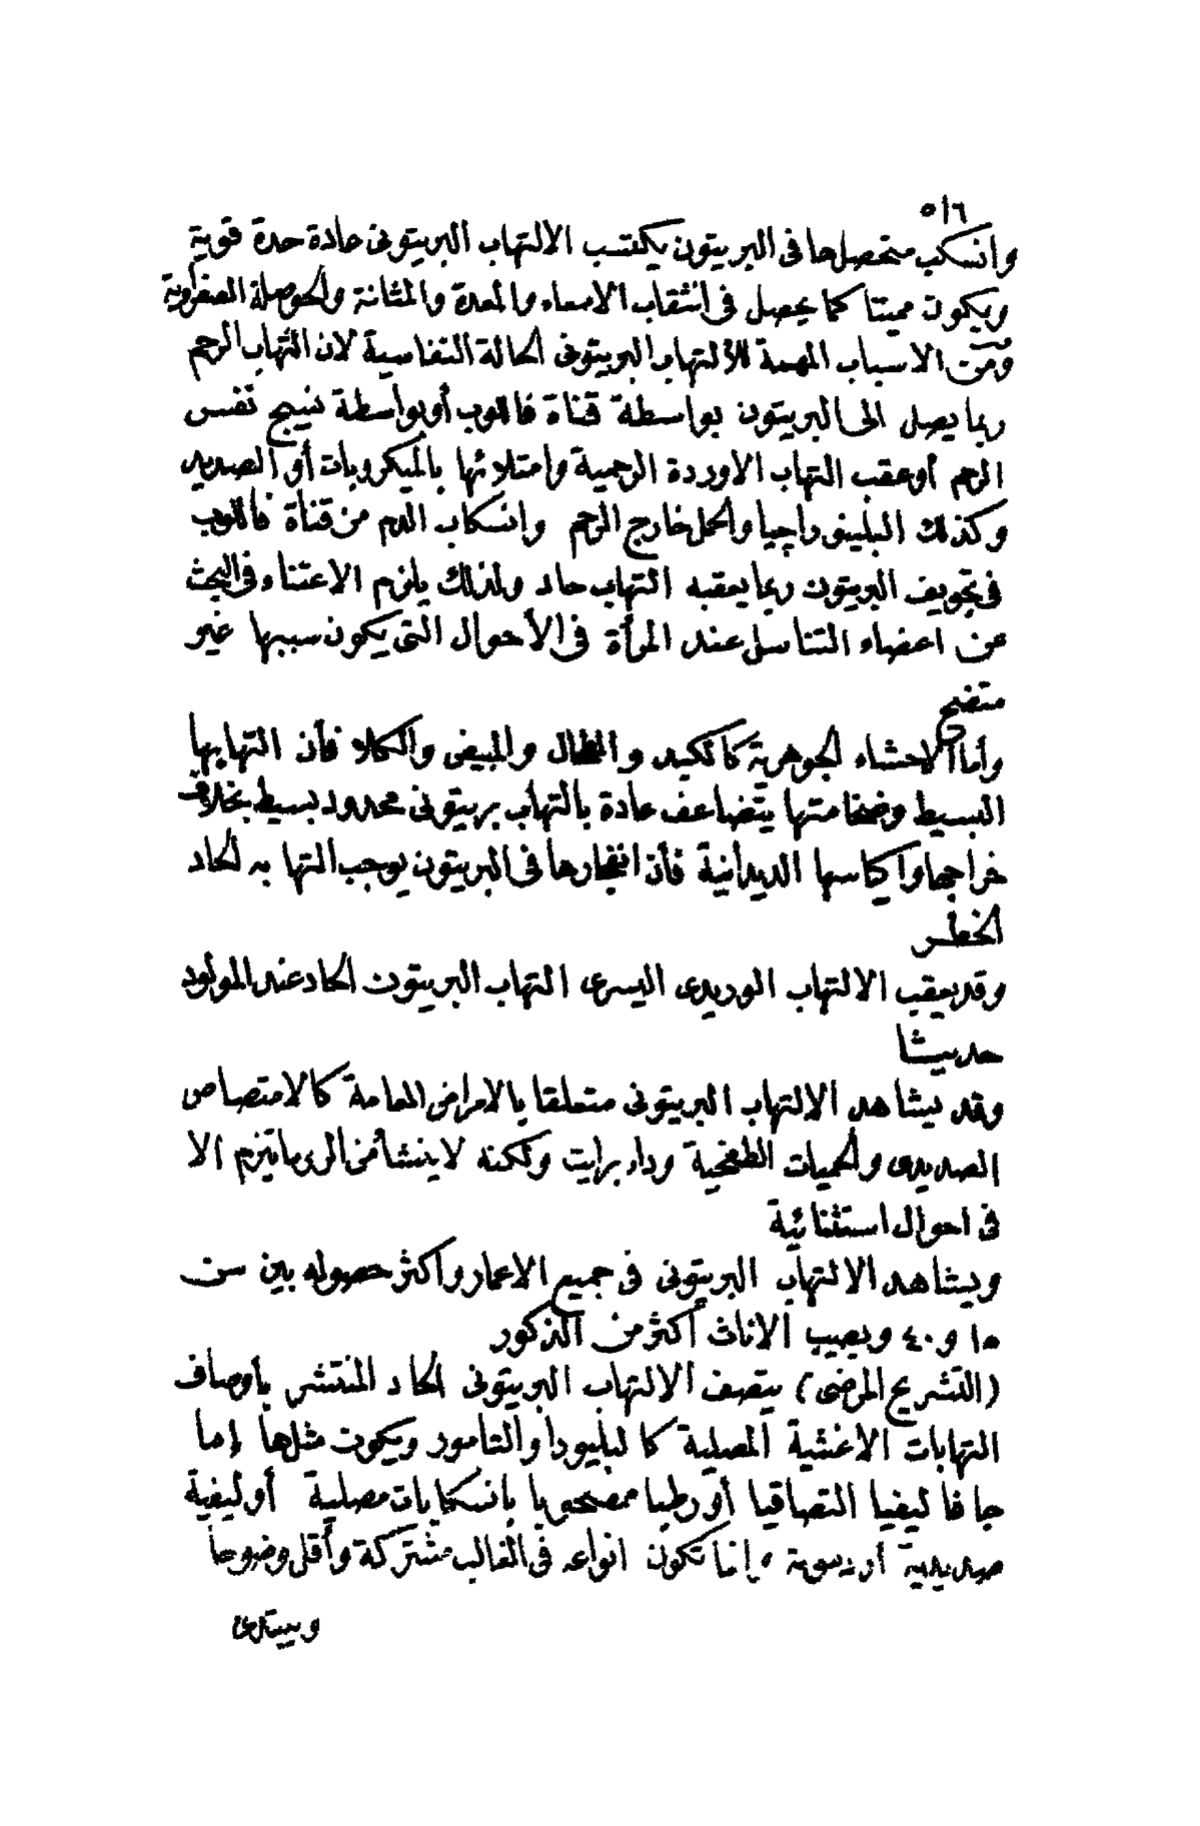 ٥١٦
وانسكب متحصلها فى البريتون يكتسب الالتهاب البريتونى حادة حدة قوية
ويكون مميتا كما يحصل فى انثقاب الامعاء والمعدة والمثانة والحوصلة الصفراوية
ومن الاسباب المهمة للألتهاب البريتونى الحالة النفاسية لان التهاب الرحم
ربما يصل الى البريتون بواسطة قناة فاللوب أو بواسطة نسيج نفس
الرحم أو عقب التهاب الاوردة الرحمية وامتلائها بالميكروبات أو الصديد
وكذلك البلينوراجيا والحمل خارج الرحم وانسكاب الدم من قناة فاللوب
فى تجويف البريتون ربما يعقبه التهاب حاد ولذلك يلزم الاعتناء فى البحث
عن اعضاء التناسل عند المرأة فى الأحوال التى يكون سببها غير
متضح
وأما الاحشاء الجوهرية كالكبد والطحال والمبيض والكلا فأن التهابها
البسيط وضخامتها يتضاعف عادة بالتهاب بريتونى محدود بسيط بخلاف
خراجها واكياسها الديدانية فأن انفجارها فى البريتون يوجب التهابه الحاد
الخطر
وقد يعقب الالتهاب الوريدى السرى التهاب البريتون الحاد عند المولود
حديثا
وقد يشاهد الالتهاب البريتونى متعلقا بالامراض العامة كالامتصاص
الصديدى والحميات الطفحية وداء برايت ولكنه لا ينشأ من الروماتيزم الا
فى احوال استثنائية
ويشاهد الالتهاب البريتونى فى جميع الاعمار واكثر حصوله بين سن
١٥ و٤٠ ويصيب الاناث أكثر من الذكور
(التشريح المرضى) يتصف الالتهاب البريتونى الحاد المنتشر بأوصاف
التهابات الاغشية المصلية كالبليورا والتامور ويكون مثلها إما
جافا ليفيا التصاقيا أو رطبا مصحوبا بانسكابات مصلية أو ليفية
صديدية أو دموية وإنما تكون انواعه فى الغالب مشتركة وأقل وضوحا